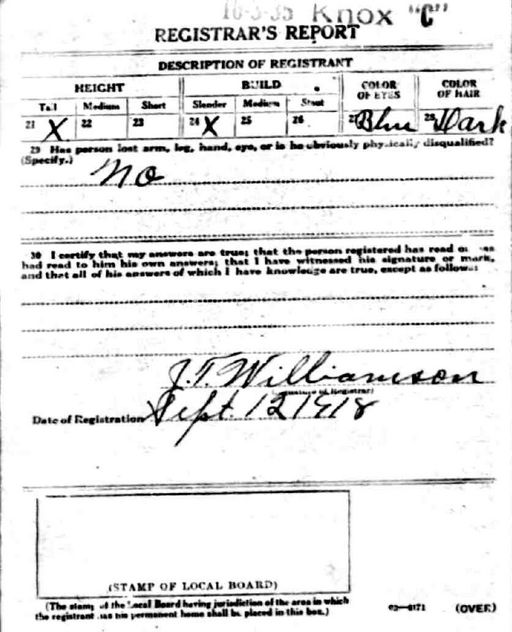 10-3-35 Knox "C"
REGISTRAR'S REPORT
DESCRIPTION OF REGISTRANT
HEIGHT BUILD COLOR OF EYES COLOR OF HAIR
Tall Medium Short Slender Medium Stout
21 X 22 23 24 X 25 26 27 Blue 28 Dark
29 Has person lost arm, leg, hand, eye, or is he obviously physically disqualified?
(Specify.)
No
30 I certify that my answers are true; that the person registered has read or has
had read to him his own answers; that I have witnessed his signature or mark,
and that all of his answers of which I have knowledge are true, except as follows:
J.T. Williamson
(Signature of Registrar)
Date of Registration Sept. 12 1918
(STAMP OF LOCAL BOARD)
(The stamp of the Local Board having jurisdiction of the area in which
the registrant has his permanent home shall be placed in this box.)
03—6171 (OVER)